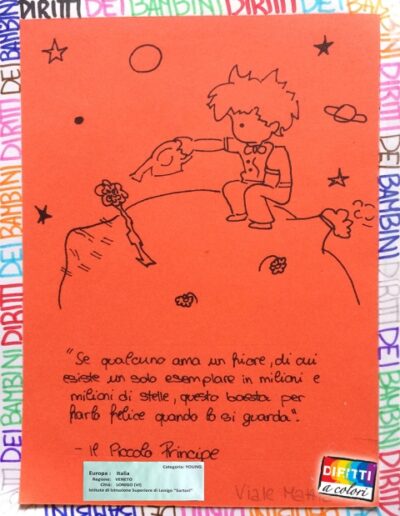 DIRITTI DEI BAMBINI DIRITTI DEI BAMBINI
"Se qualcuno ama un fiore, di cui
esiste un solo esemplare in milioni e
milioni di stelle, questo basta per
farlo felice quando lo si guarda".
- Il Piccolo Principe
Categoria: YOUNG
Europa: Italia
Regione: VENETO
Città: LONIGO (VI)
Istituto di Istruzione Superiore di Lonigo "Sartori"
DIRITTI
a colori
Viale